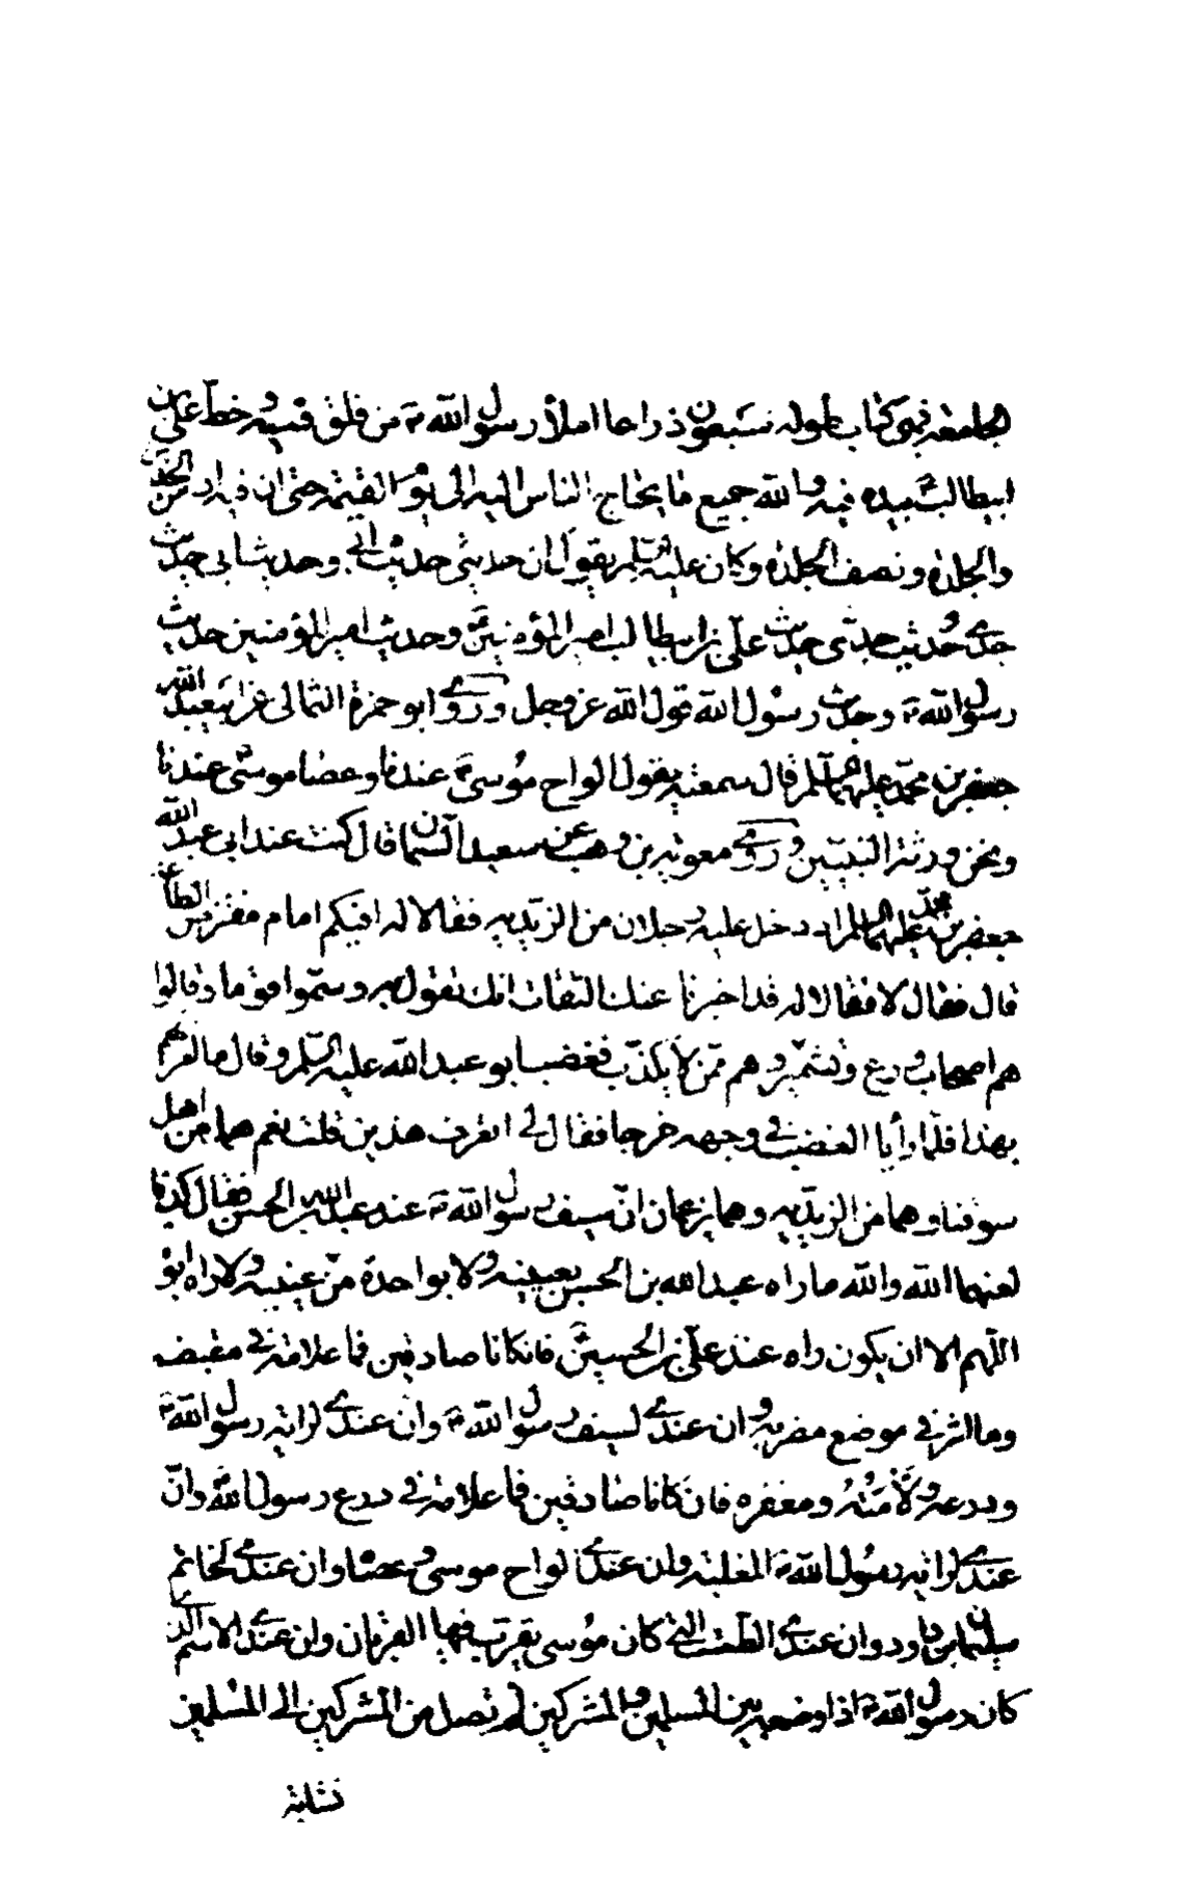 الجامعة فهو كتاب طوله سبعون ذراعا املأ رسول الله ص من فلق فيه وخط علي بن
ابيطالب ع بيده فيه والله جميع ما يحتاج الناس اليه الى يوم القيمة حتى ان فيه ارش الخدش
والجلدة ونصف الجلدة وكان عليه السلم يقول ان حديثي حديث ابي وحديث ابي حديث
جدي وحديث جدي حديث علي بن ابيطالب امير المؤمنين ع وحديث امير المؤمنين حديث
رسول الله ص وحديث رسول الله قول الله عز وجل وروى ابو حمزة الثمالى عن ابيعبد الله
جعفر بن محمد عليهما السلم قال سمعته يقول الواح موسى ع عندنا وعصا موسى عندنا
ونحن ورثة النبيين وروى معوية بن وهب عن سعيد السمان قال كنت عند ابى عبد الله
جعفر بن محمد عليهما السلم اذ دخل عليه رجلان من الزيدية فقالا له افيكم امام مفترض الطاعة
قال فقال لا فقالا له قد اخبرنا عنك الثقات انك تقول به وسموا قوما وقالوا
هم اصحاب ورع وتشمير وهم ممن لا يكذب فغضب ابو عبد الله عليه السلم وقال ما امرتهم
بهذا فلما رأيا الغضب في وجهه خرجا فقال لي اتعرف هذين قلت نعم هما من اهل
سوقنا وهما من الزيدية وهما يزعمان ان سيف رسول الله ص عند عبد الله بن الحسن فقال كذبا
لعنهما الله والله ما راه عبد الله بن الحسن بعينيه ولا بواحدة من عينيه ولا راه ابوه
اللهم الا ان يكون راه عند علي بن الحسين ع فان كانا صادقين فما علامة في مقبضه
وما اثر في موضع مضربه وان عندي لسيف رسول الله ص وان عندي لراية رسول الله ص
ودرعه ولأمته ومغفره فان كانا صادقين فما علامة في درع رسول الله ص وان
عندي لراية رسول الله ص المغلبة وان عندي الواح موسى وعصاه وان عندي لخاتم
سليمان بن داود وان عندي الطشت التي كان موسى يقرب فيها القربان وان عندي الاسم الذي
كان رسول الله ص اذا وضعه بين المسلمين والمشركين لم تصل من المشركين الى المسلمين
نشابة